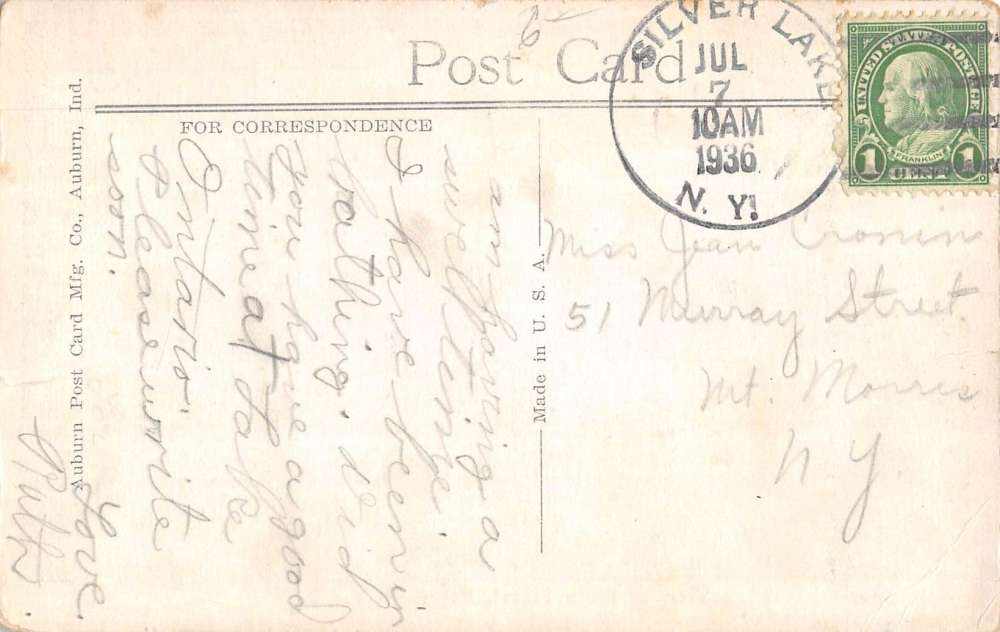 Post Card
FOR CORRESPONDENCE
Auburn Post Card Mfg. Co., Auburn, Ind.
Made in U. S. A.
SILVER LAKE
JUL
7
10AM
1936
N. Y.
UNITED STATES POSTAGE
FRANKLIN
1 CENT 1
am having a
swell time.
I have been in
bathing. did
you have a good
time at Lake
Ontario
Please write
soon.
Love
Ruth
Miss Jean Cronin
51 Murray Street
Mt. Morris
N Y.